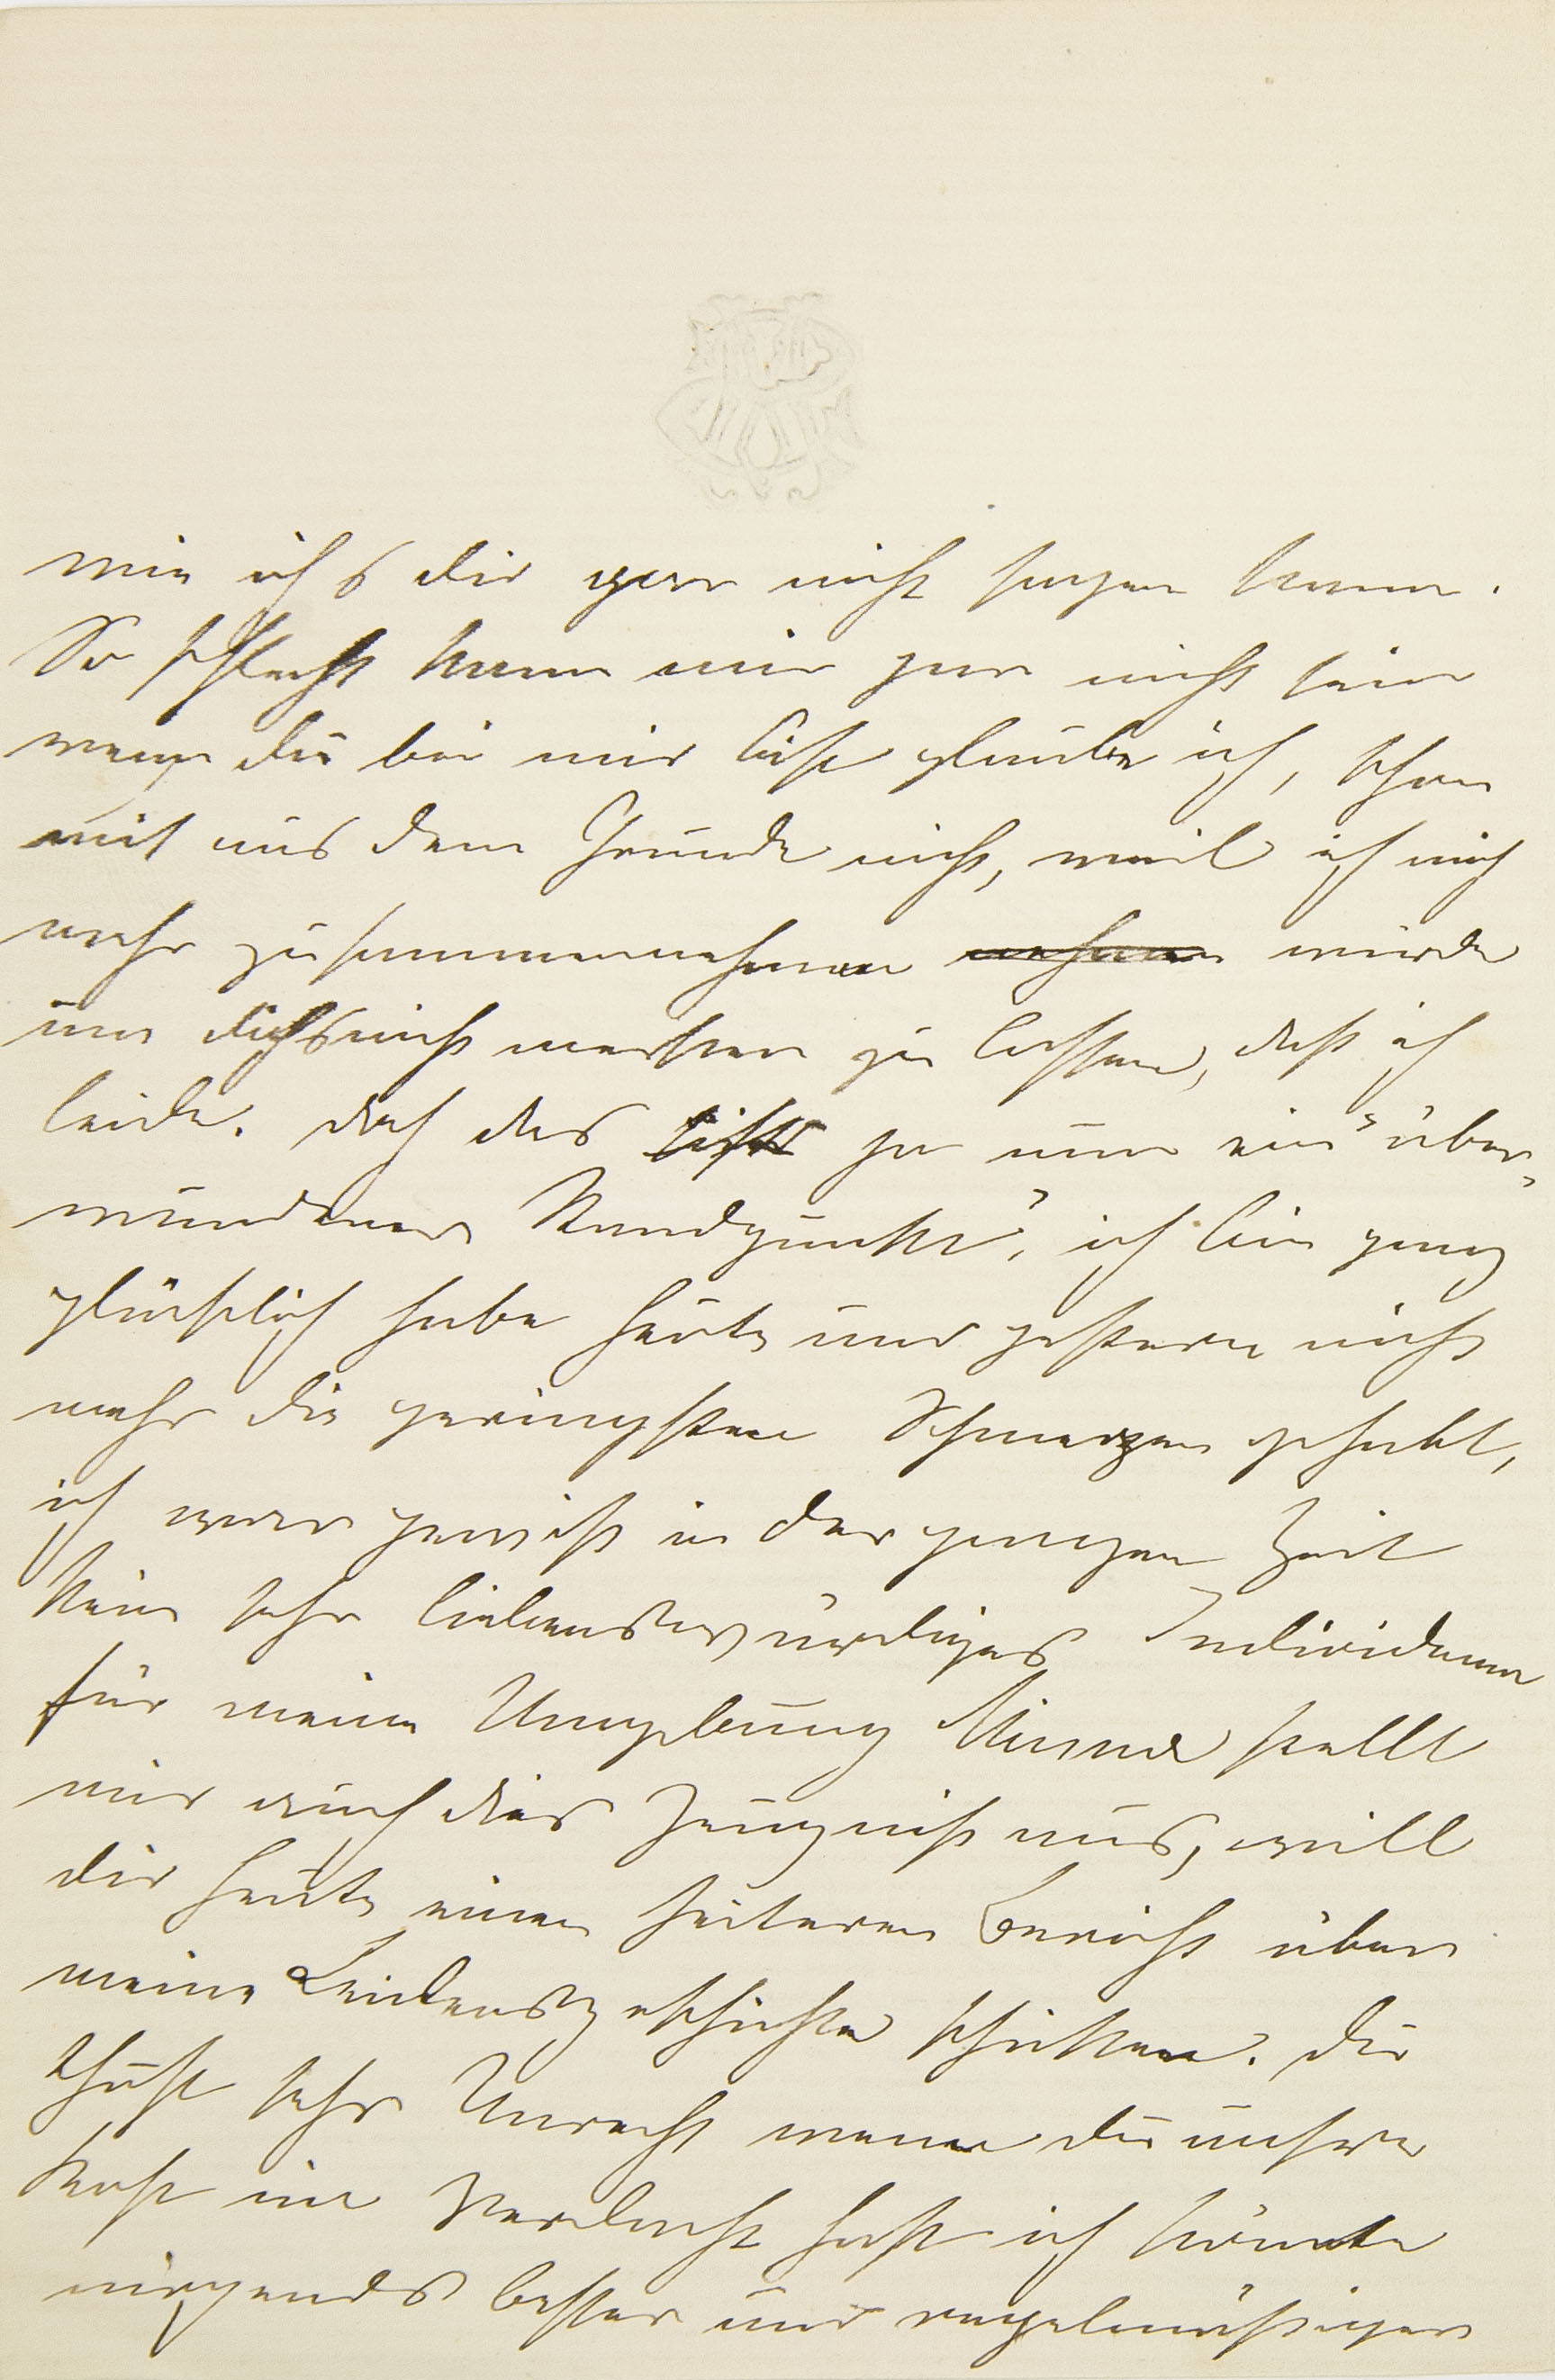 wie ich's dir gar nicht sagen kann.
So schlecht kann mir gar nicht sein
wenn du bei mir bist glaube ich, schon
mit aus dem Grunde nicht, weil ich mich
mehr zusammennehmen nehmen würde
um dich's nicht merken zu lassen, daß ich
leide. doch das ist ja nun ein "über-
wundener Standpunkt", ich bin ganz
glücklich habe heute und gestern nicht
mehr die geringsten Schmerzen gehabt,
ich war gewiß in der ganzen Zeit
kein sehr liebenswürdiges Individuum
für meine Umgebung Minna stellt
mir auch dies Zeugniß aus, will
dir heute einen heiteren Bericht über
meine Leidensgeschichte schicken. du
thust sehr Unrecht wenn du unsere
Kost im Verdacht hast ich könnte
nirgends besser und regelmäßiger